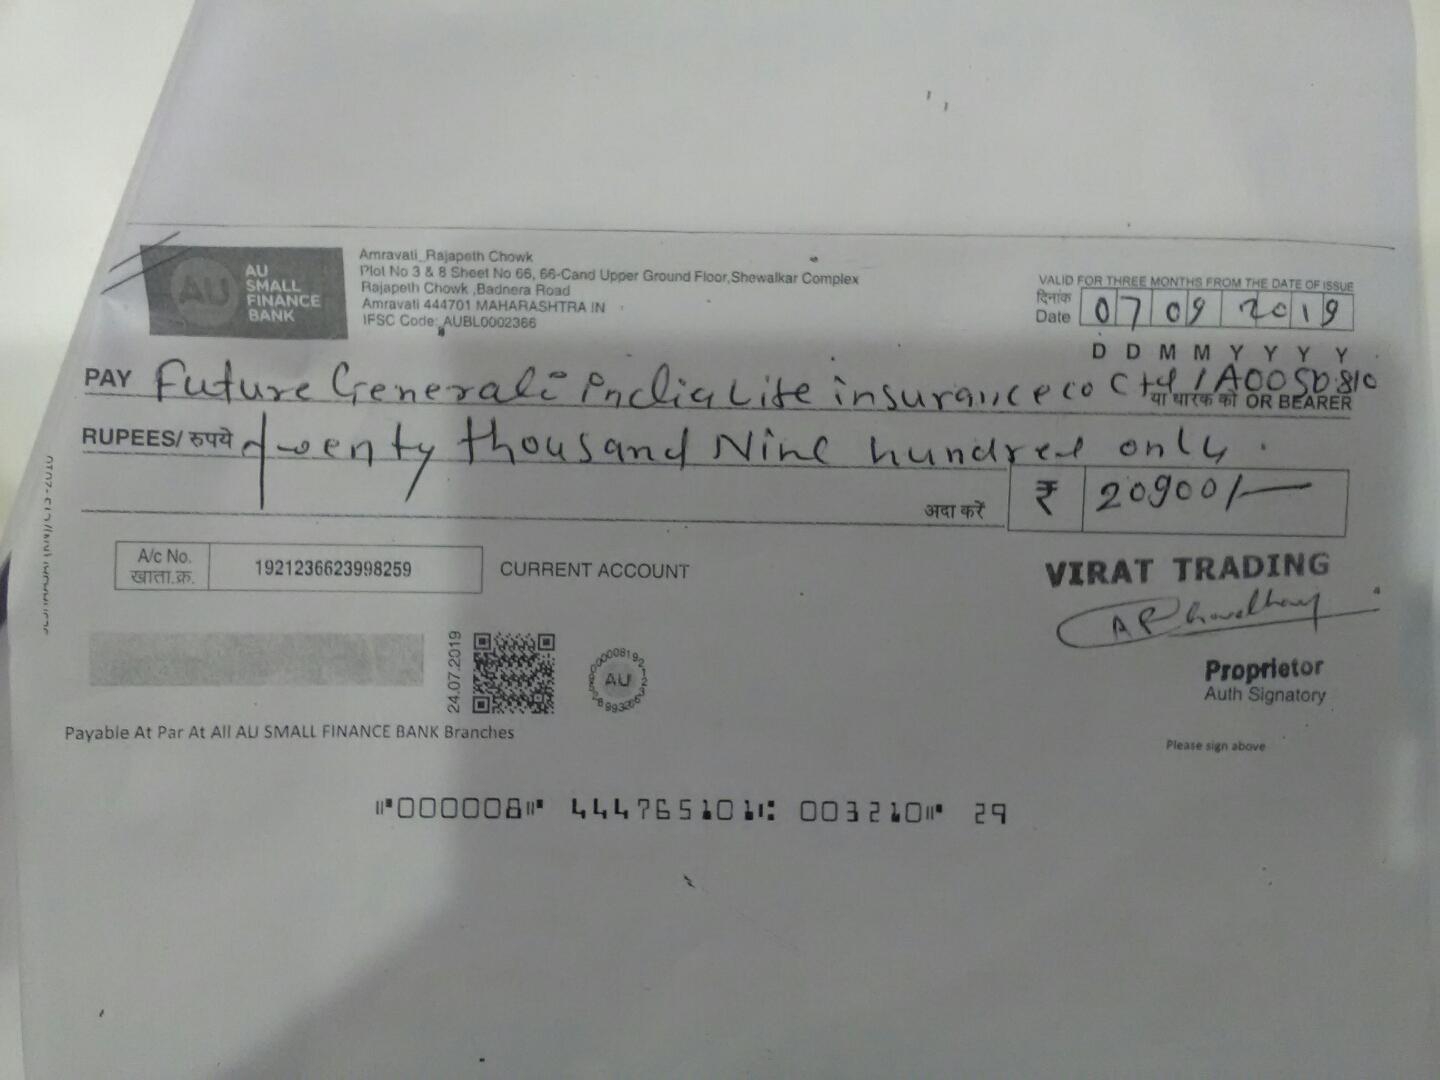 AU
AU
SMALL
FINANCE
BANK
Amravati_Rajapeth Chowk
Plot No 3 & 8 Sheet No 66, 66-Cand Upper Ground Floor,Shewalkar Complex
Rajapeth Chowk ,Badnera Road
Amravati 444701 MAHARASHTRA IN
IFSC Code: AUBL0002366
VALID FOR THREE MONTHS FROM THE DATE OF ISSUE
दिनांक
Date 07 09 2019
D D M M Y Y Y Y
PAY Future Generali india Life insurance co Ltd /
या धारक को OR BEARER
RUPEES/ रुपये twenty thousand Nine hundred only.
अदा करें ₹ 20900/-
A/c No.
खाता.क्र. 1921236623998259 CURRENT ACCOUNT
VIRAT TRADING
A P Chowdhary
24.07.2019
AU
Proprietor
Auth Signatory
Payable At Par At All AU SMALL FINANCE BANK Branches
Please sign above
⑈000008⑈ 444765101⑆ 003210⑈ 29